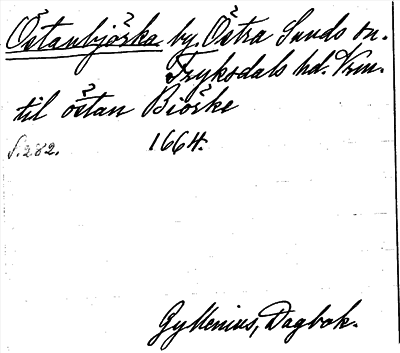 Östanbjörka by. Östra Sunds sn.
Fryksdals hd. Vrm.
til östan Biörke
S. 282. 1664.
Gyllenius, Dagbok.